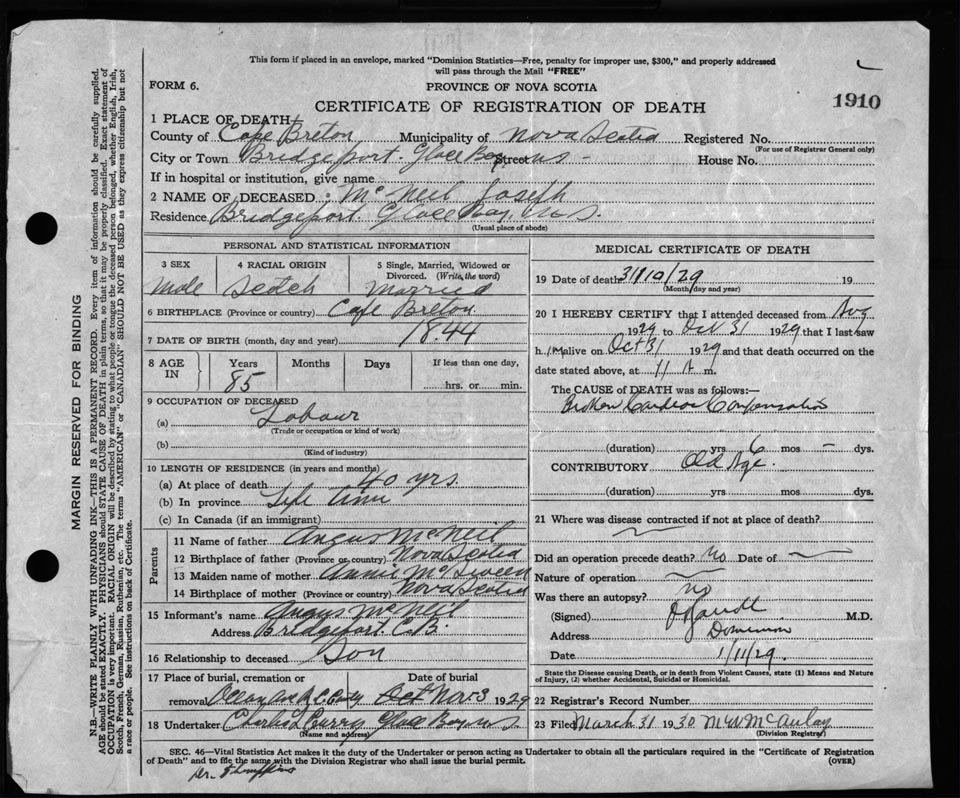 This form if placed in an envelope, marked "Dominion Statistics—Free, penalty for improper use, $300," and properly addressed
will pass through the Mail "FREE"
FORM 6.
PROVINCE OF NOVA SCOTIA
1910
CERTIFICATE OF REGISTRATION OF DEATH
1 PLACE OF DEATH
County of Cape Breton Municipality of Nova Scotia Registered No.
(For use of Registrar General only)
City or Town Bridgeport. Glace Bay Street NS - House No.
If in hospital or institution, give name
2 NAME OF DECEASED: McNeil Joseph
Residence Bridgeport. Glace Bay, N.S.
(Usual place of abode)
PERSONAL AND STATISTICAL INFORMATION
3 SEX 4 RACIAL ORIGIN 5 Single, Married, Widowed or
Divorced. (Write the word)
Male Scotch Married
6 BIRTHPLACE (Province or country) Cape Breton
7 DATE OF BIRTH (month, day and year) 1844
8 AGE IN Years Months Days If less than one day,
85 hrs. or min.
9 OCCUPATION OF DECEASED
(a) Labour
(Trade or occupation or kind of work)
(b)
(Kind of industry)
10 LENGTH OF RESIDENCE (in years and months)
(a) At place of death 40 yrs.
(b) In province Life time
(c) In Canada (if an immigrant)
Parents
11 Name of father Angus McNeil
12 Birthplace of father (Province or country) Nova Scotia
13 Maiden name of mother Annie McSween
14 Birthplace of mother (Province or country) Nova Scotia
15 Informant's name Angus McNeil
Address Bridgeport. C.B.
16 Relationship to deceased Son
17 Place of burial, cremation or Date of burial
removal R.C. Oct Nov 3 1929
18 Undertaker Charles Curry Glace Bay NS
(Name and address)
MEDICAL CERTIFICATE OF DEATH
19 Date of death 31/10/29 19
(Month, day and year)
20 I HEREBY CERTIFY that I attended deceased from Aug
1929 to Oct 31 1929 that I last saw
h im alive on Oct 31 1929 and that death occurred on the
date stated above, at 11 A m.
The CAUSE of DEATH was as follows:—
Broken Cardiac Compensation
(duration) yrs 6 mos – dys.
CONTRIBUTORY Old Age.
(duration) yrs mos dys.
21 Where was disease contracted if not at place of death?
Did an operation precede death? No Date of
Nature of operation
Was there an autopsy? no
(Signed) M.D.
Address Dominion
Date 1/11/29.
State the Disease causing Death, or in death from Violent Causes, state (1) Means and Nature
of Injury, (2) whether Accidental, Suicidal or Homicidal.
22 Registrar's Record Number
23 Filed March 31 1930 McAulay
(Division Registrar)
SEC. 46—Vital Statistics Act makes it the duty of the Undertaker or person acting as Undertaker to obtain all the particulars required in the "Certificate of Registration
of Death" and to file the same with the Division Registrar who shall issue the burial permit.
(OVER)
Dr.
MARGIN RESERVED FOR BINDING
N.B.—WRITE PLAINLY WITH UNFADING INK—THIS IS A PERMANENT RECORD. Every item of information should be carefully supplied.
AGE should be stated EXACTLY. PHYSICIANS should STATE CAUSE OF DEATH in plain terms, so that it may be properly classified. Exact statement of
OCCUPATION is very important. RACIAL ORIGIN will be described by stating to what people or tongue the deceased person belonged, whether English, Irish,
Scotch, French, German, Russian, Ruthenian, etc. The terms "AMERICAN" or "CANADIAN" SHOULD NOT BE USED as they express citizenship but not
a race or people. See instructions on back of Certificate.